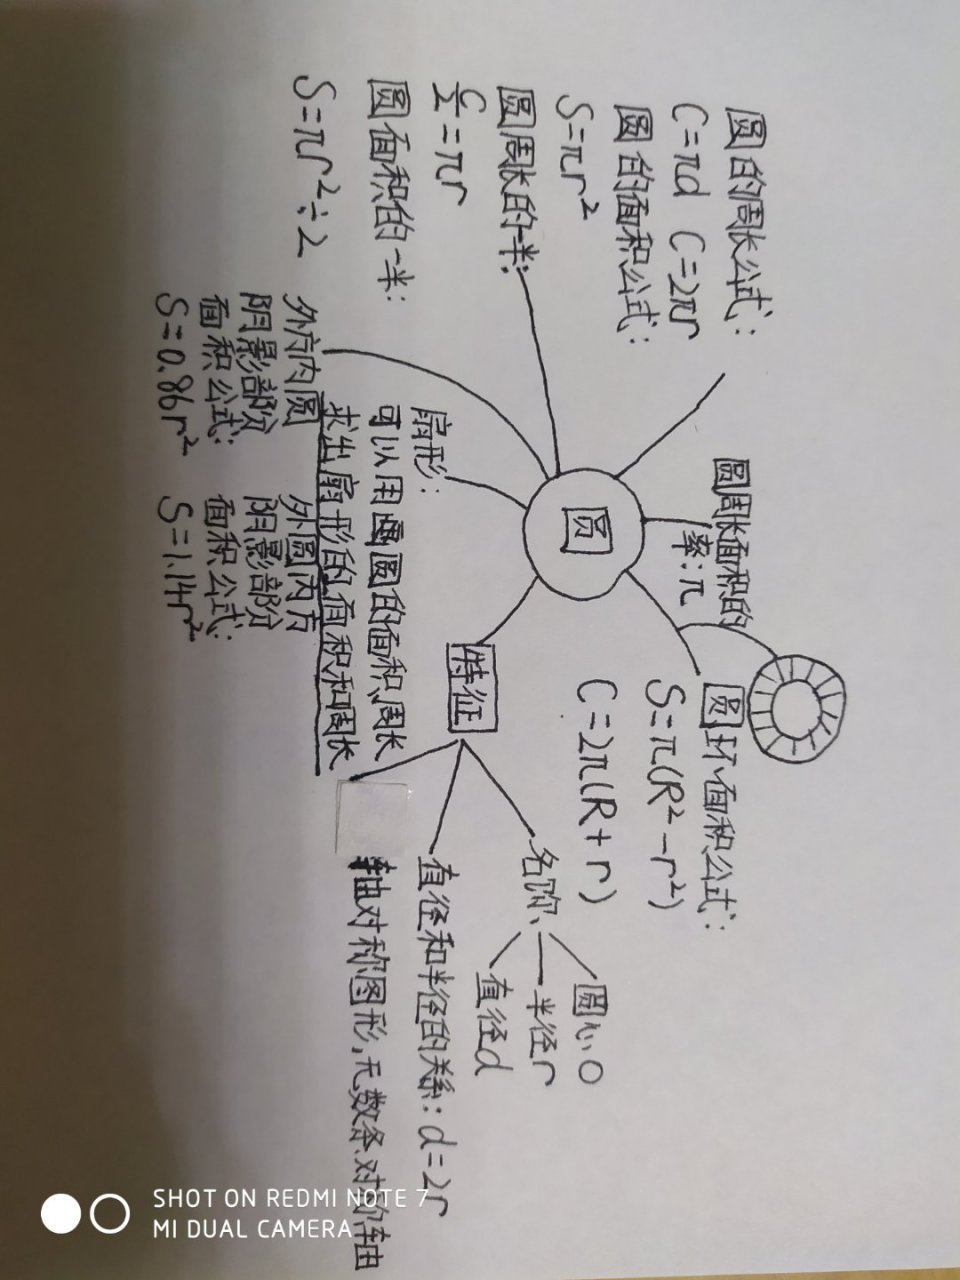 圆的周长公式:
C=πd C=2πr
圆的面积公式:
S=πr²
圆周长的一半:
C/2=πr
圆面积的一半:
S=πr²÷2
外方内圆
阴影部分
面积公式:
S=0.86r²
外圆内方
阴影部分
面积公式:
S=1.14r²
扇形:
可以用圆的面积、周长
求出扇形的面积和周长
圆
圆周长面积的
率:π
圆环面积公式:
S=π(R²-r²)
C=2π(R+r)
特征
名称
圆心O
半径r
直径d
直径和半径的关系:d=2r
轴对称图形,无数条对称轴
SHOT ON REDMI NOTE 7
MI DUAL CAMERA